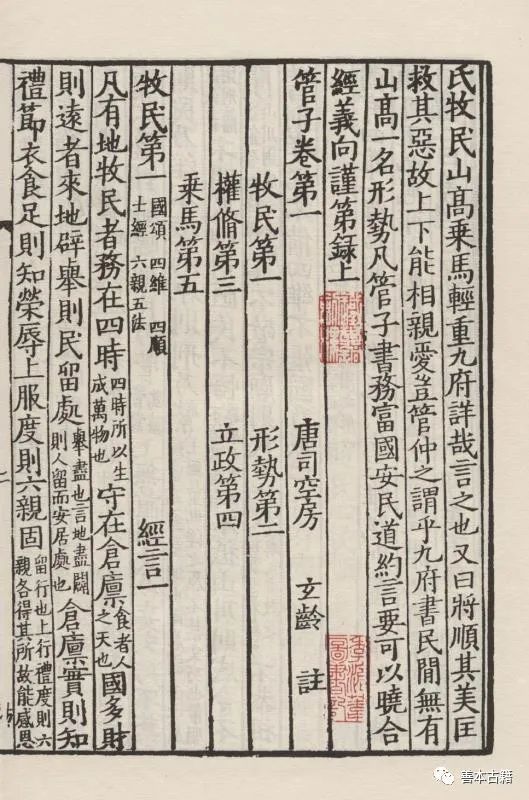 氏牧民山髙乗馬輕重九府詳哉言之也又曰將順其美匡
救其惡故上下能相親愛豈管仲之謂乎九府書民間無有
山髙一名形勢凡管子書務富國安民道約言要可以曉合
經義向謹第録上
管子卷第一 唐司空房 玄齡 註
牧民第一 形勢第二
權脩第三 立政第四
乗馬第五
牧民第一 國頌 四維 四順 士經 六親五法 經言一
凡有地牧民者務在四時四時所以生成萬物也守在倉廪食者人之天也國多財
則遠者來地辟舉則民留處舉盡也言地盡闢則人留而安居處也倉廪實則知
禮節衣食足則知榮辱上服度則六親固留行也上行禮度則六親各得其所故能感恩
善本古籍